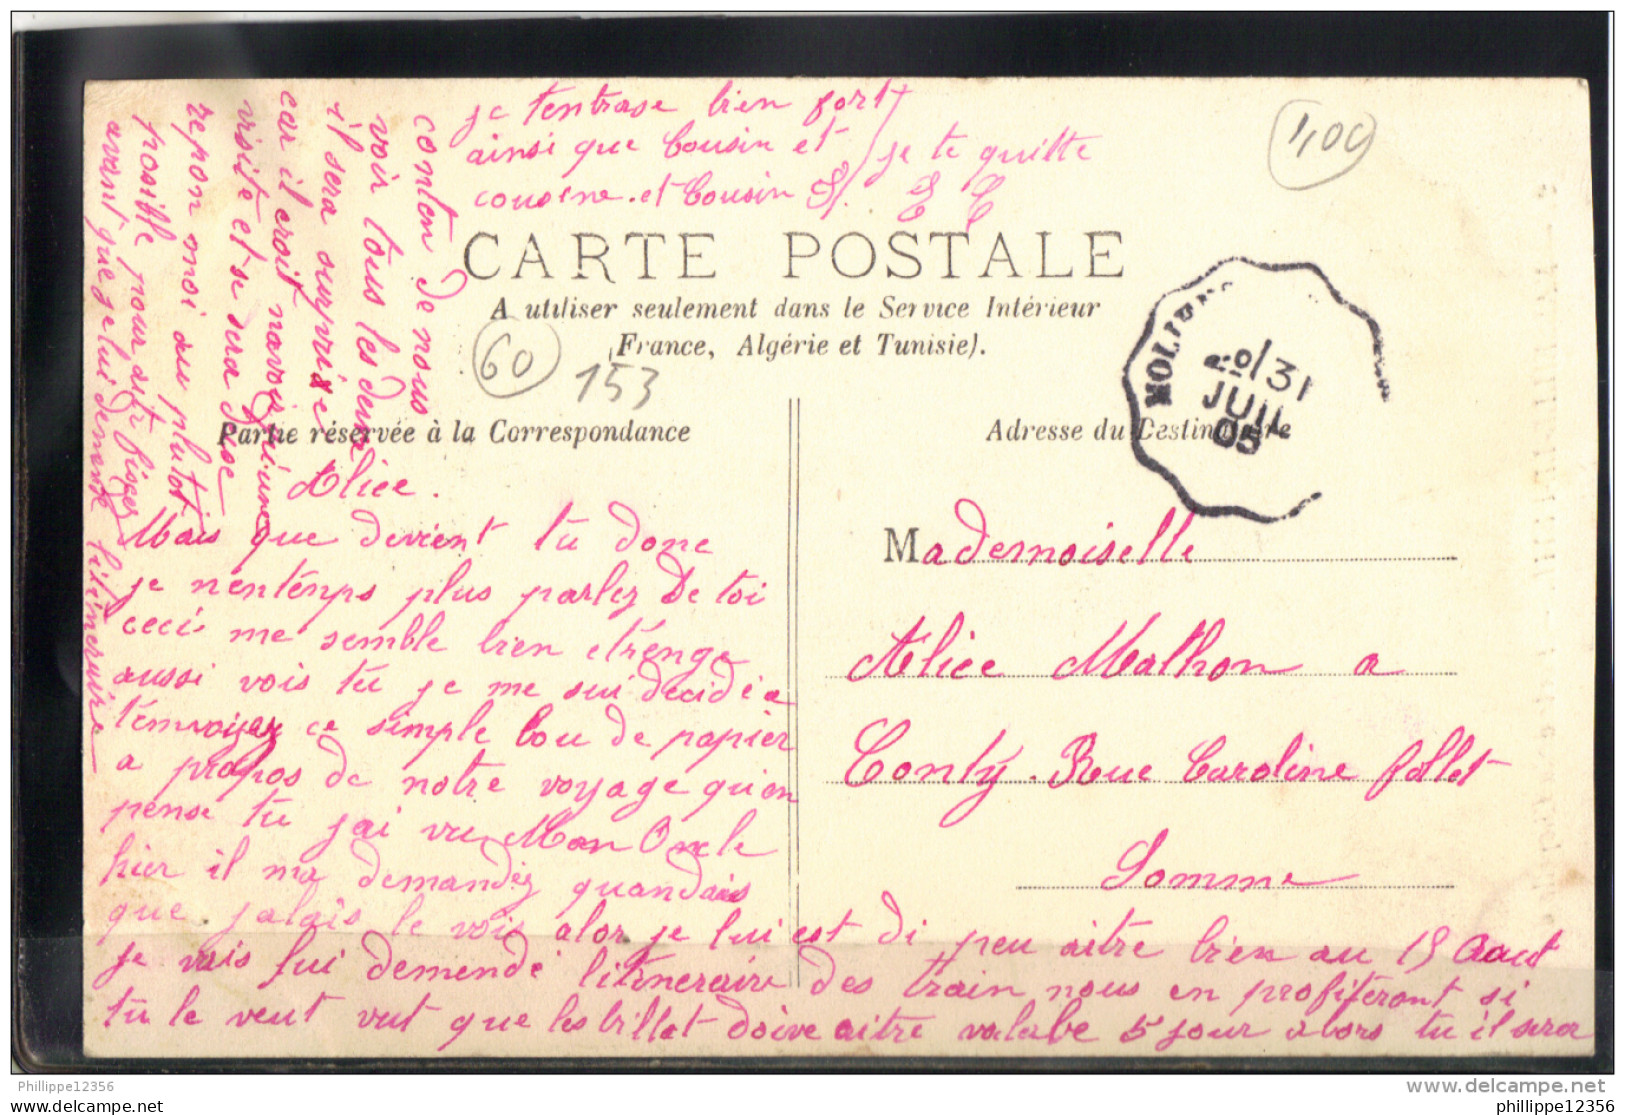 CARTE POSTALE
A utiliser seulement dans le Service Intérieur
France, Algérie et Tunisie).
Partie réservée à la Correspondance
Adresse du Destinataire
60
153
400
31
JUIL
05
Mademoiselle
Alice Mathon a
Conty. Rue Caroline follet
Somme
Alice.
Mais que devient tu donc
je nentemps plus parlez De toi
ceci me semble bien etrenge
aussi vois tu je me sui decidé a
t'envoyer ce simple bou de papier
a propos de notre voyage qu'en
pense tu j'ai vu Mon Oncle
hier il ma demandez quandais
que jalais le vois alor je lui est di peu aitre bien au 15 Aout
je vais lui demendé litineraire des train nous en profiteront si
tu le veut vut que les billet doive aitre valabe 5 jour alors tu il sera
conten de nous
voir tous les deux
il sera surprise
car il croit navoir qu'une
visite et se sera deuse
repon moi au plutot
possible pour aitr fixer
avant que je lui demende litineraire
je tenbrase bien fort
ainsi que Cousin et
cousine. et Cousin
je te quitte
Philippe12356
www.delcampe.net
philippe12356
philippe12356